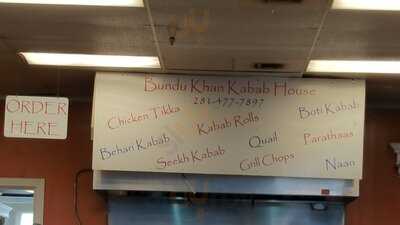 Bundu Khan Kabab House
281-477-7897
ORDER
HERE
Chicken Tikka
Kabab Rolls
Boti Kabab
Behari Kabab
Seekh Kabab
Quail
Parathaas
Grill Chops
Naan